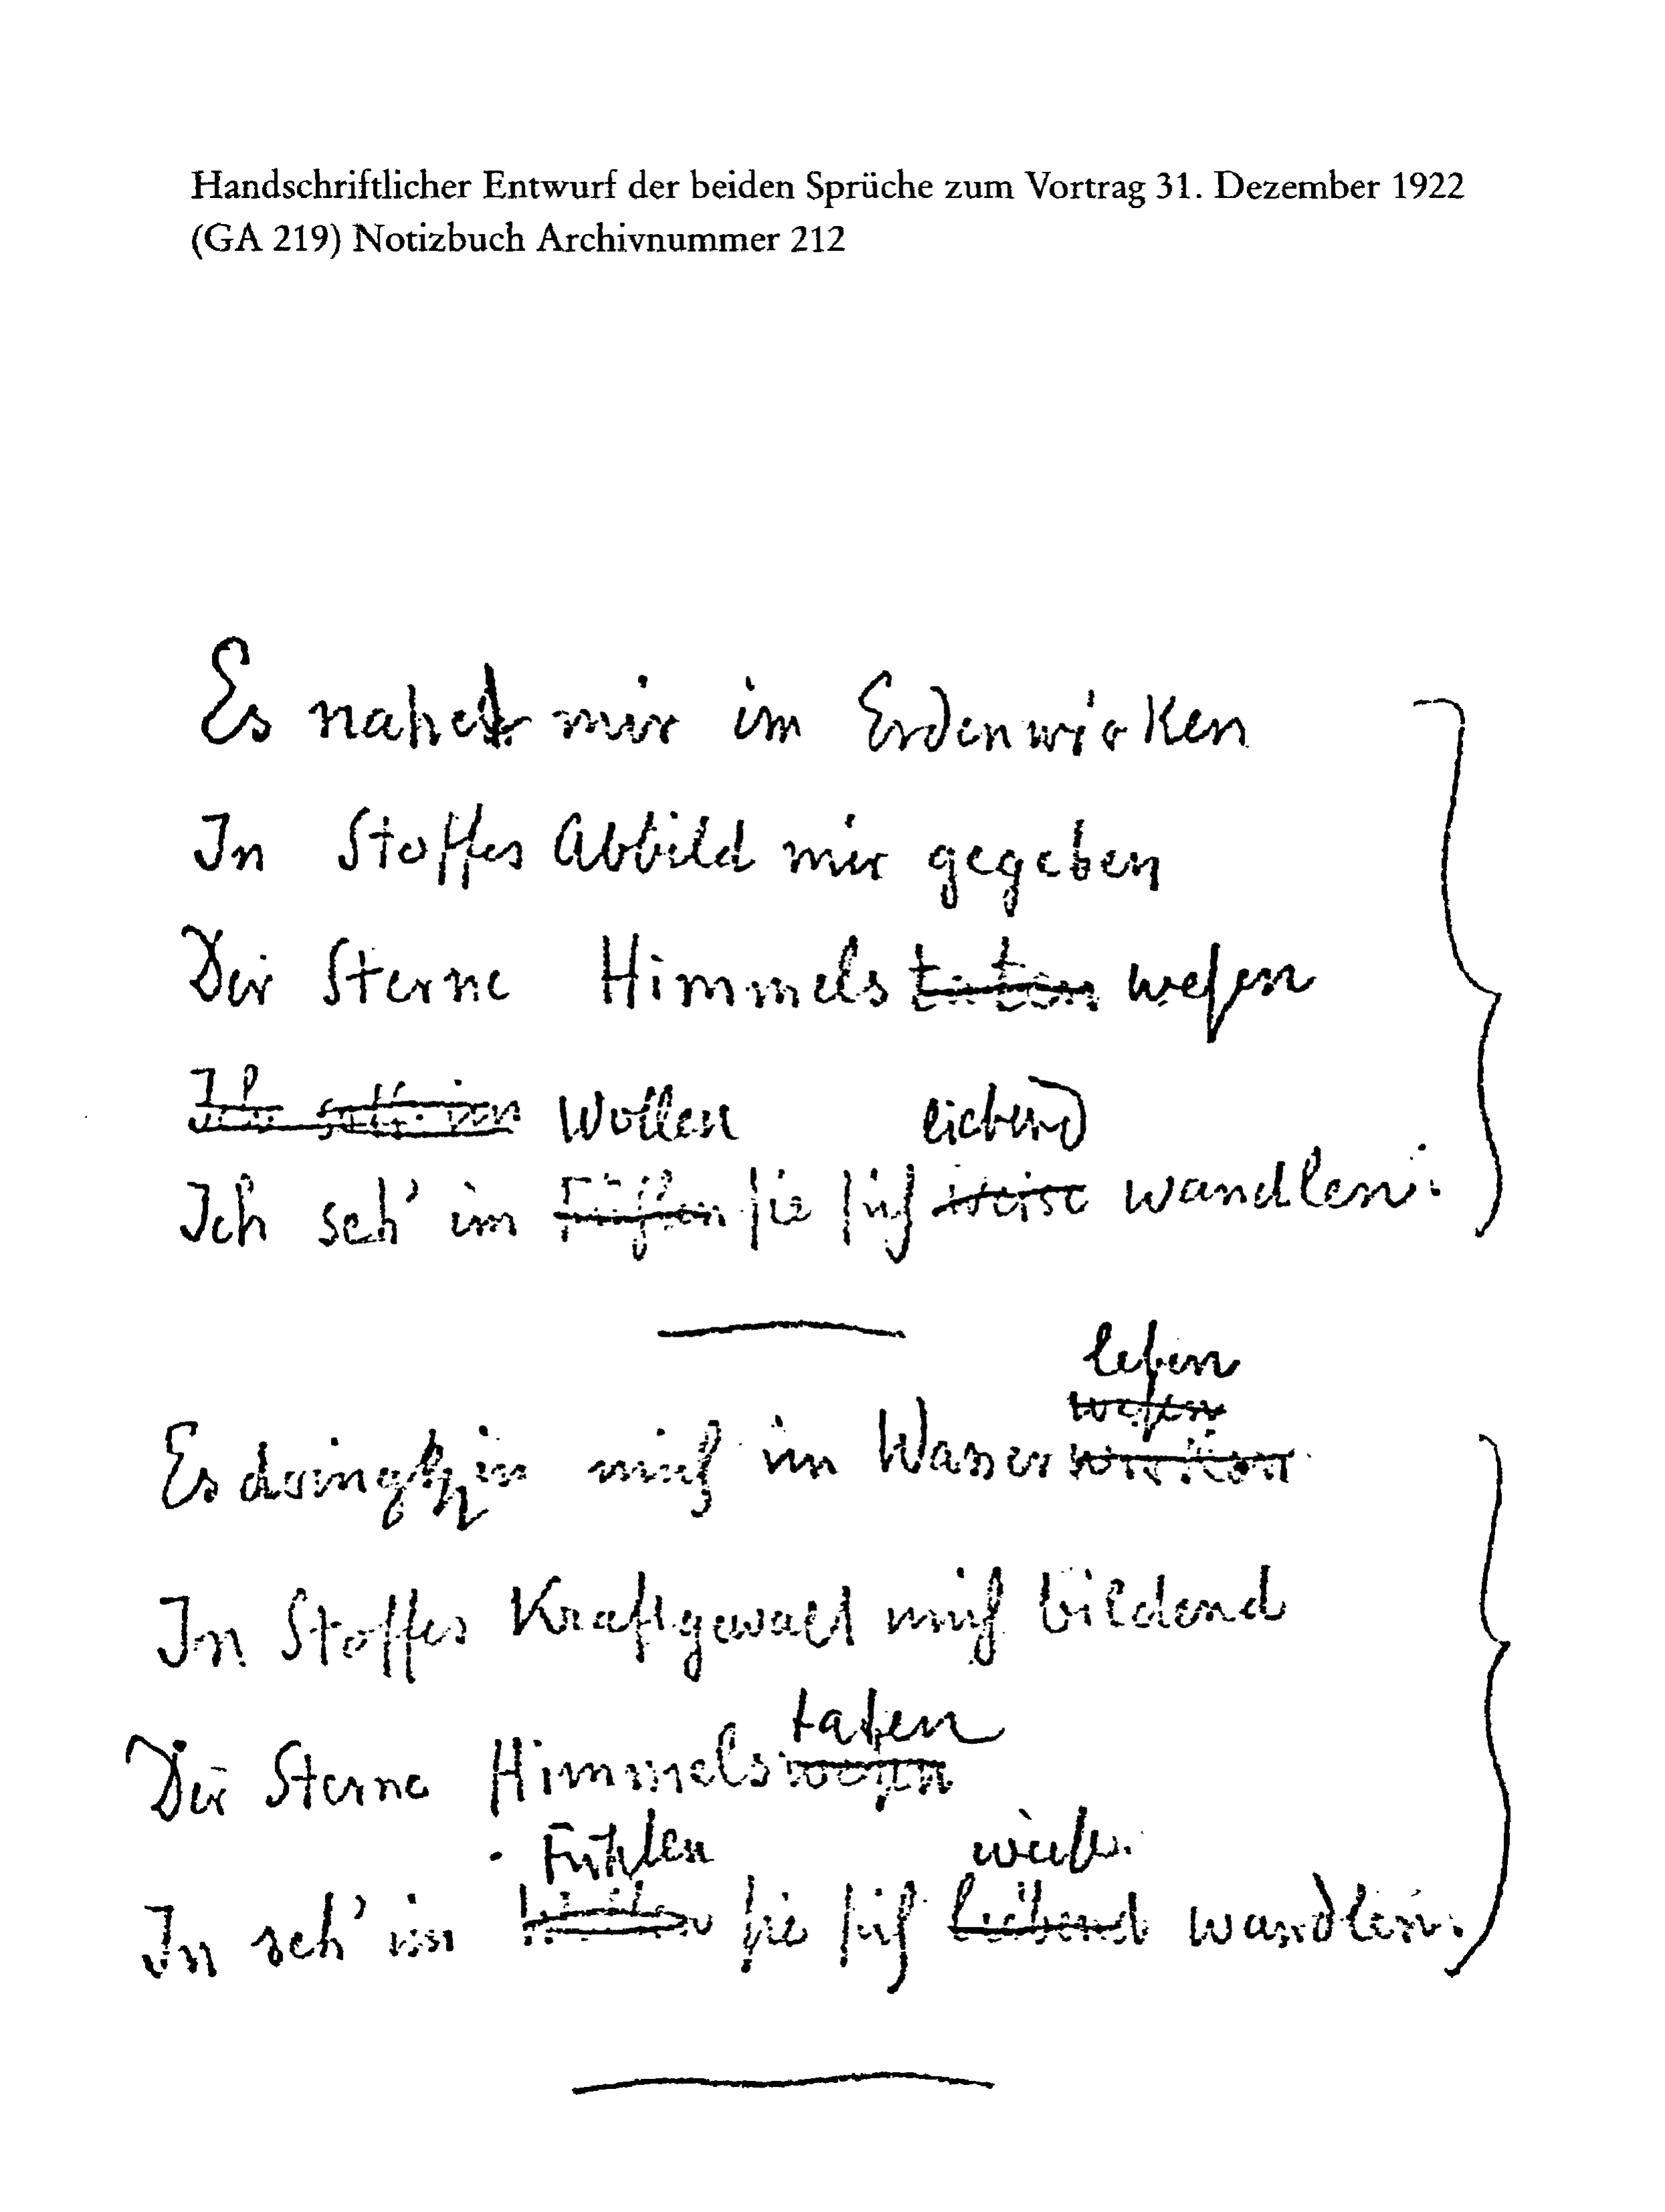 Handschriftlicher Entwurf der beiden Sprüche zum Vortrag 31. Dezember 1922
(GA 219) Notizbuch Archivnummer 212
Es nahet mir im Erdenwirken
In Stoffes Abbild mir gegeben
Der Sterne Himmels taten wesen
Wollen liebend
Ich seh' im Fühlen sie sich weise wandlen.
leben
wesen
Es dringt in mich im Wasserwirken
In Stoffes Kraftgewalt mich bildend
taten
Der Sterne Himmelswesen
Fühlen weise
In seh' im sie sich liebend wandlen.